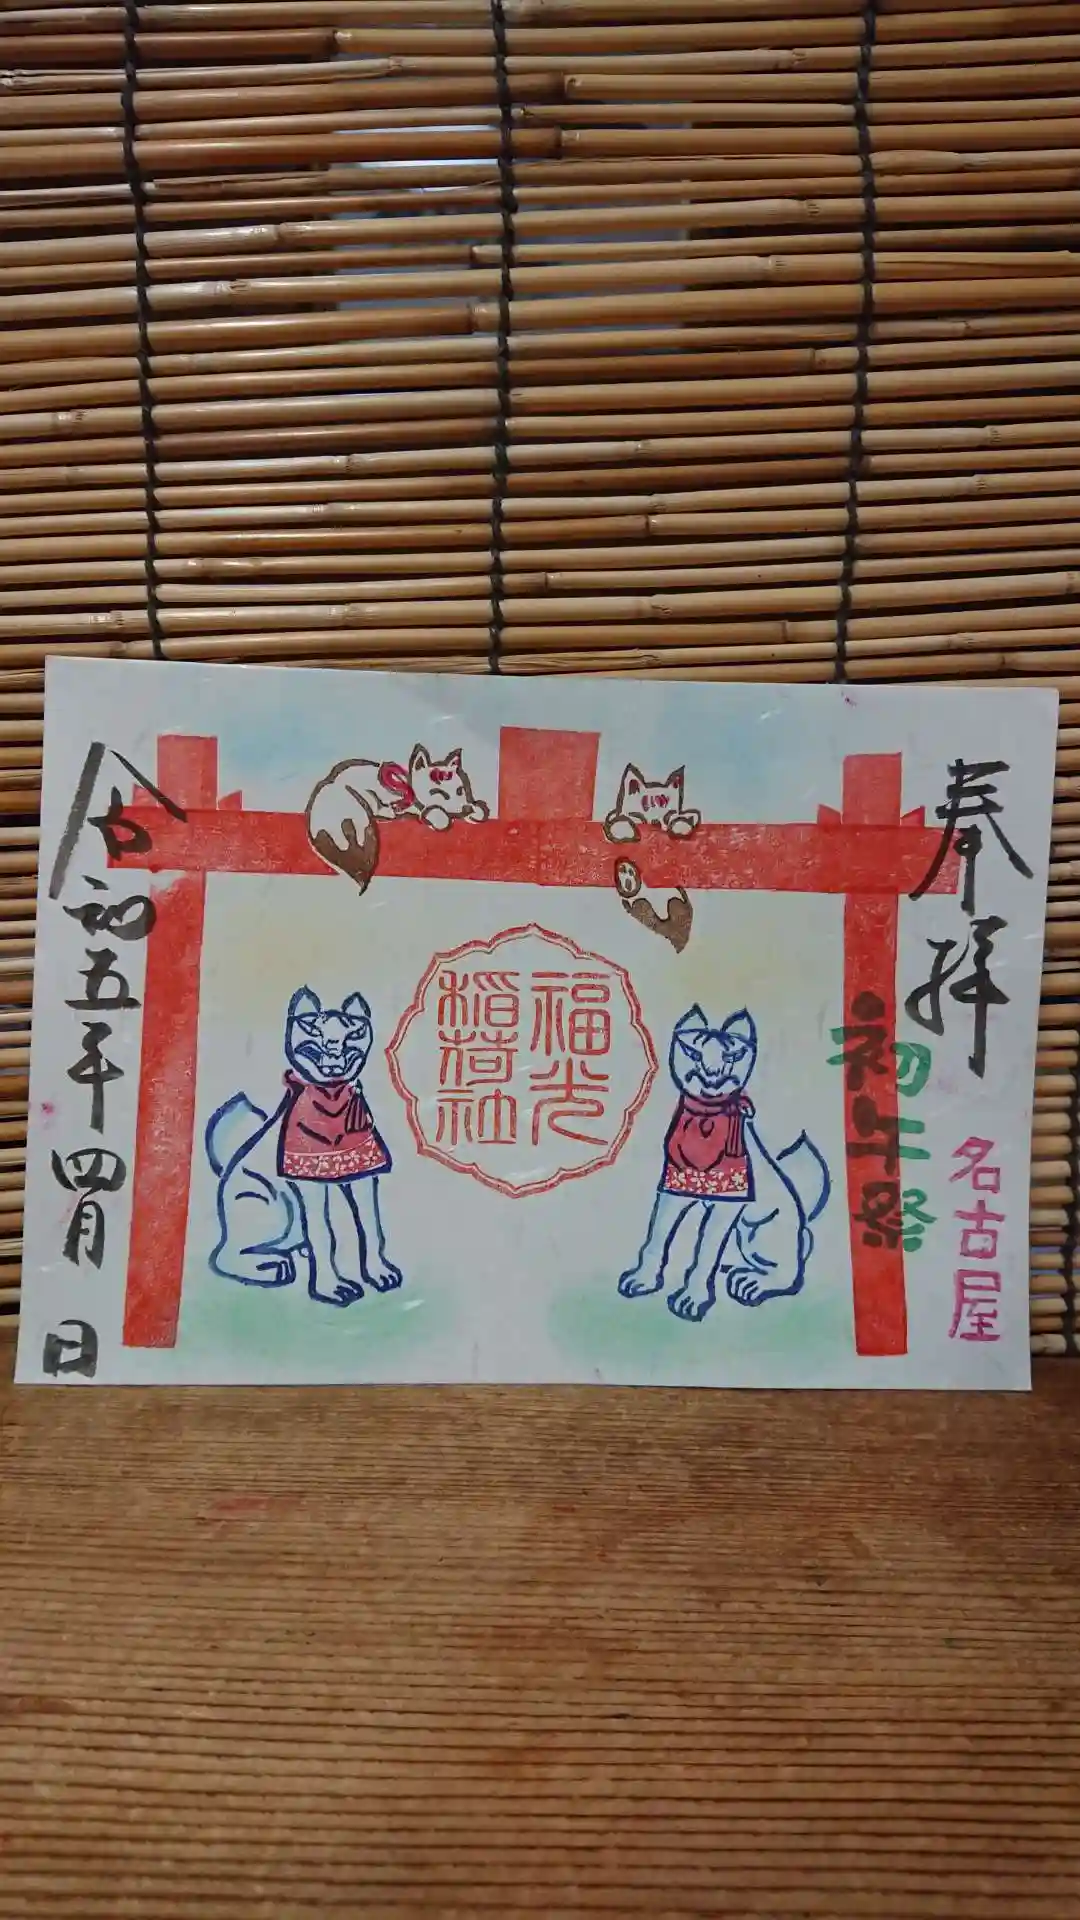 奉拝
名古屋
初午祭
福光
稲荷社
令和五年四月 日